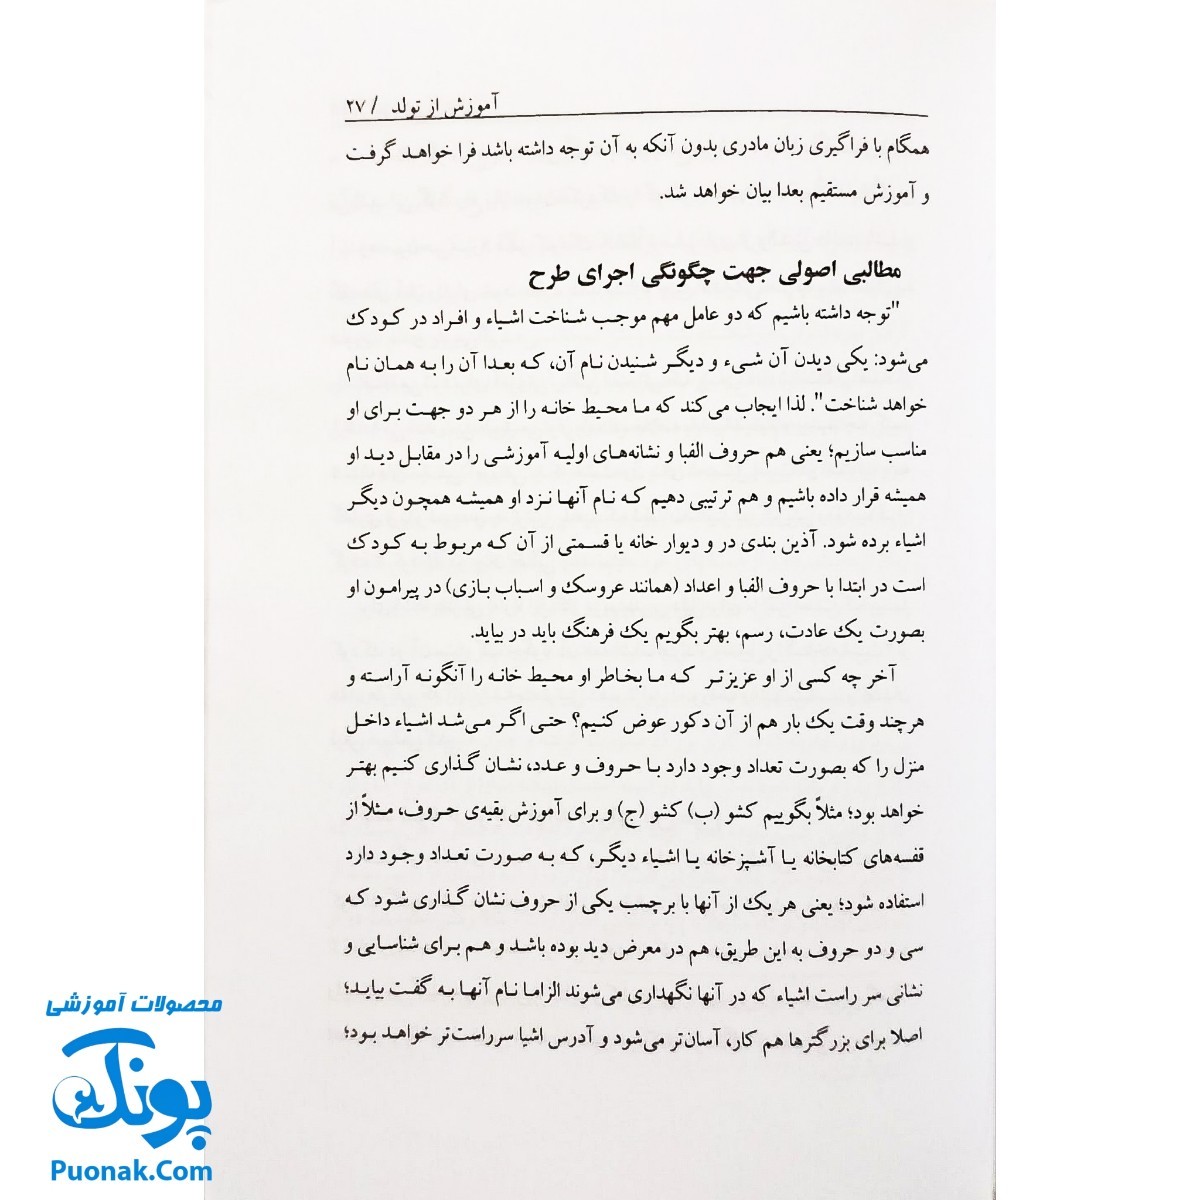 آموزش از تولد / ۲۷
همگام با فراگیری زبان مادری بدون آنکه به آن توجه داشته باشد فرا خواهد گرفت
و آموزش مستقیم بعدا بیان خواهد شد.
مطالبی اصولی جهت چگونگی اجرای طرح
"توجه داشته باشیم که دو عامل مهم موجب شناخت اشیاء و افراد در کودک
می‌شود: یکی دیدن آن شیء و دیگر شنیدن نام آن، که بعدا آن را به همان نام
خواهد شناخت". لذا ایجاب می‌کند که ما محیط خانه را از هر دو جهت برای او
مناسب سازیم؛ یعنی هم حروف الفبا و نشانه‌های اولیه آموزشی را در مقابل دید او
همیشه قرار داده باشیم و هم ترتیبی دهیم که نام آنها نزد او همیشه همچون دیگر
اشیاء برده شود. آذین بندی در و دیوار خانه یا قسمتی از آن که مربوط به کودک
است در ابتدا با حروف الفبا و اعداد (همانند عروسک و اسباب بازی) در پیرامون او
بصورت یک عادت، رسم، بهتر بگویم یک فرهنگ باید در بیاید.
آخر چه کسی از او عزیزتر که ما بخاطر او محیط خانه را آنگونه آراسته و
هرچند وقت یک بار هم از آن دکور عوض کنیم؟ حتی اگر می‌شد اشیاء داخل
منزل را که بصورت تعداد وجود دارد با حروف و عدد، نشان گذاری کنیم بهتر
خواهد بود؛ مثلاً بگوییم کشو (ب) کشو (ج) و برای آموزش بقیه‌ی حروف، مثلاً از
قفسه‌های کتابخانه یا آشپزخانه یا اشیاء دیگر، که به صورت تعداد وجود دارد
استفاده شود؛ یعنی هر یک از آنها با برچسب یکی از حروف نشان گذاری شود که
سی و دو حروف به این طریق، هم در معرض دید بوده باشد و هم برای شناسایی و
نشانی سر راست اشیاء که در آنها نگهداری می‌شوند الزاما نام آنها به گفت بیاید؛
اصلا برای بزرگترها هم کار، آسان‌تر می‌شود و آدرس اشیا سرراست‌تر خواهد بود؛
محصولات آموزشی
پونک
Puonak.Com